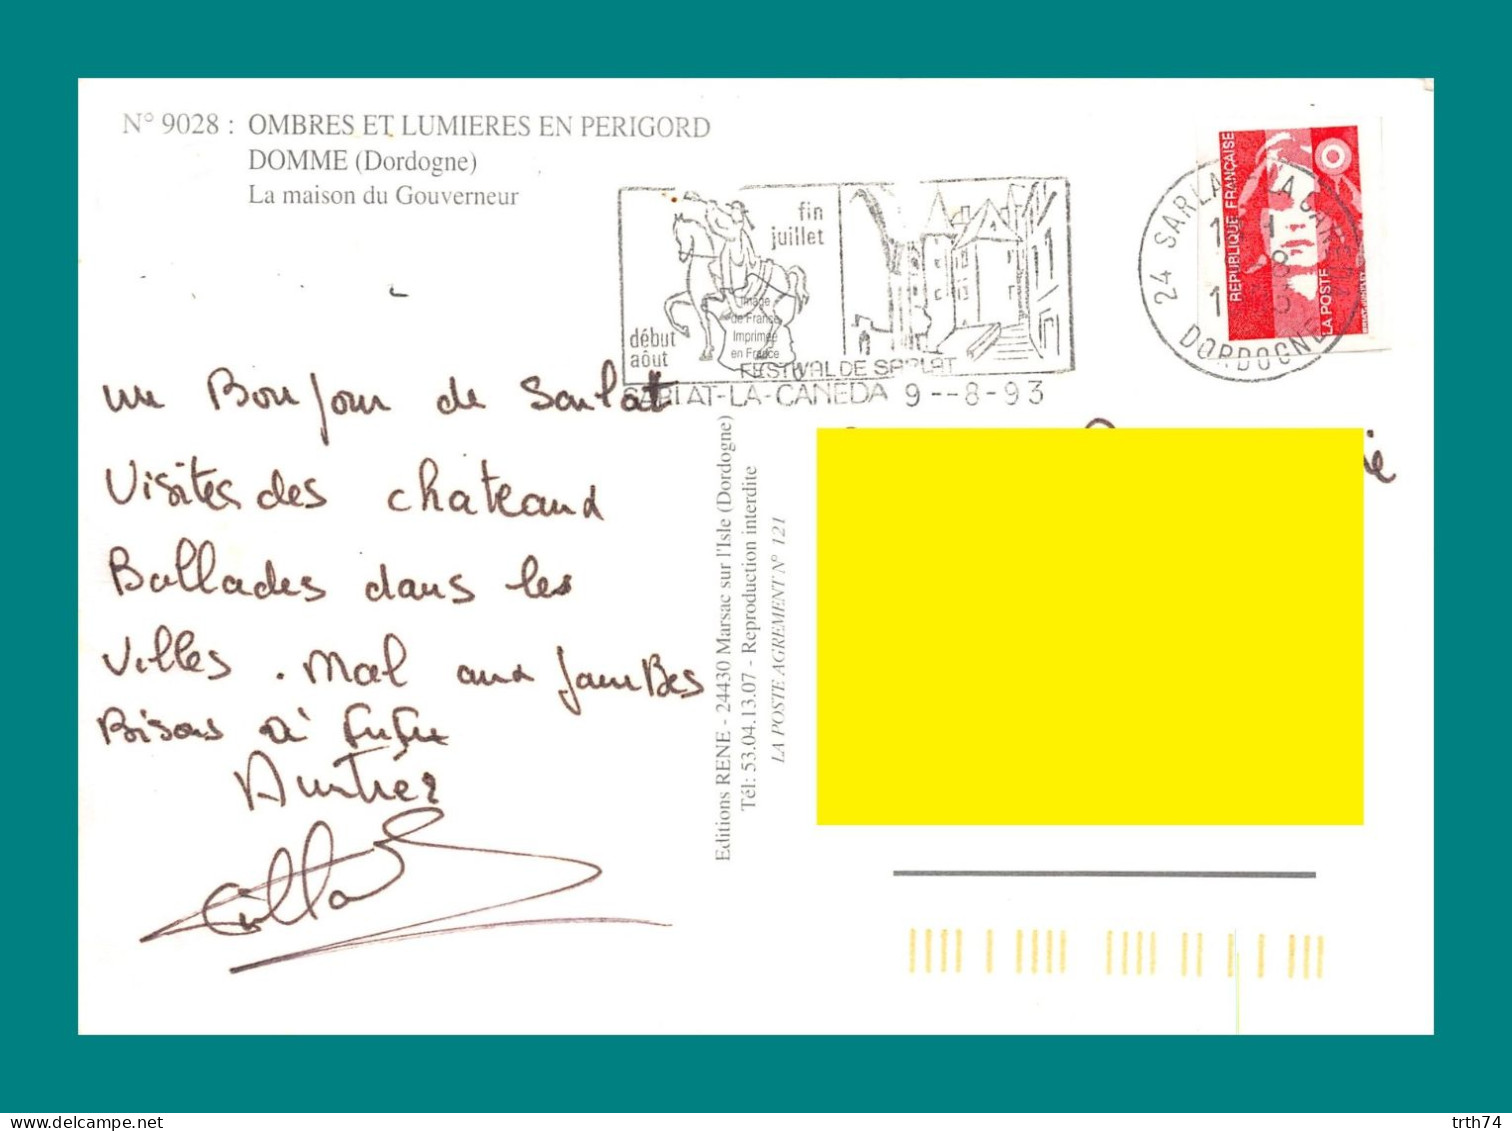 N° 9028 : OMBRES ET LUMIERES EN PERIGORD
DOMME (Dordogne)
La maison du Gouverneur
fin
juillet
début
aôut
Image
de France
Imprimée
en France
FESTIVAL DE SARLAT
SARLAT-LA-CANEDA 9--8-93
24 SARLAT-LA CANEDA
DORDOGNE
REPUBLIQUE FRANÇAISE
LA POSTE
un Bonjour de Sarlat
Visites des chateaux
Ballades dans les
Villes . Mal aux jambes
Bisous à
Editions RENE - 24430 Marsac sur l'Isle (Dordogne)
Tél: 53.04.13.07 - Reproduction interdite
LA POSTE AGREMENT N° 121
delcampe.net
trth74